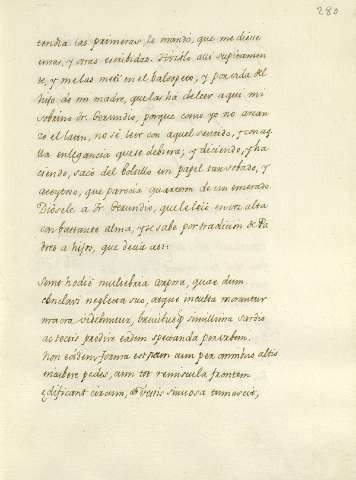 280
tendia las primeras, se mandó, que me diesse
unas, y otras escribidas. Hizolo assi
y me las metí en el balsopeto; y por vida del
hijo de mi madre, que las há de leer aqui mi
sobrino Fr. Gerundio, porque como yo no alcan
zo el latin, no sé leer con aquel sentido, y con aque
lla enlegancia que se debiera; y diciendo, y ha
ciendo, sacó del bolsillo un papel tan sobado, y
aceytoso, que parecia quarteron de un encerado
Diósele a Fr. Gerundio, que le leió en voz alta
con bastante alma, y se sabe por tradicion de Pa
dres a hijos, que decia assi:
Sunt hodie muliebria corpora, quae dum
conclavi neglecta suo, atque inculta morantur
macra videbuntur, brevibusq simillima sardis
ac tectis prodire eadem spectanda pavebam.
Non eadem forma est; nam cum per omnibus altis
incubere pedes, cum tot frontem
edificant circum, vestis sinuosa tumescit,